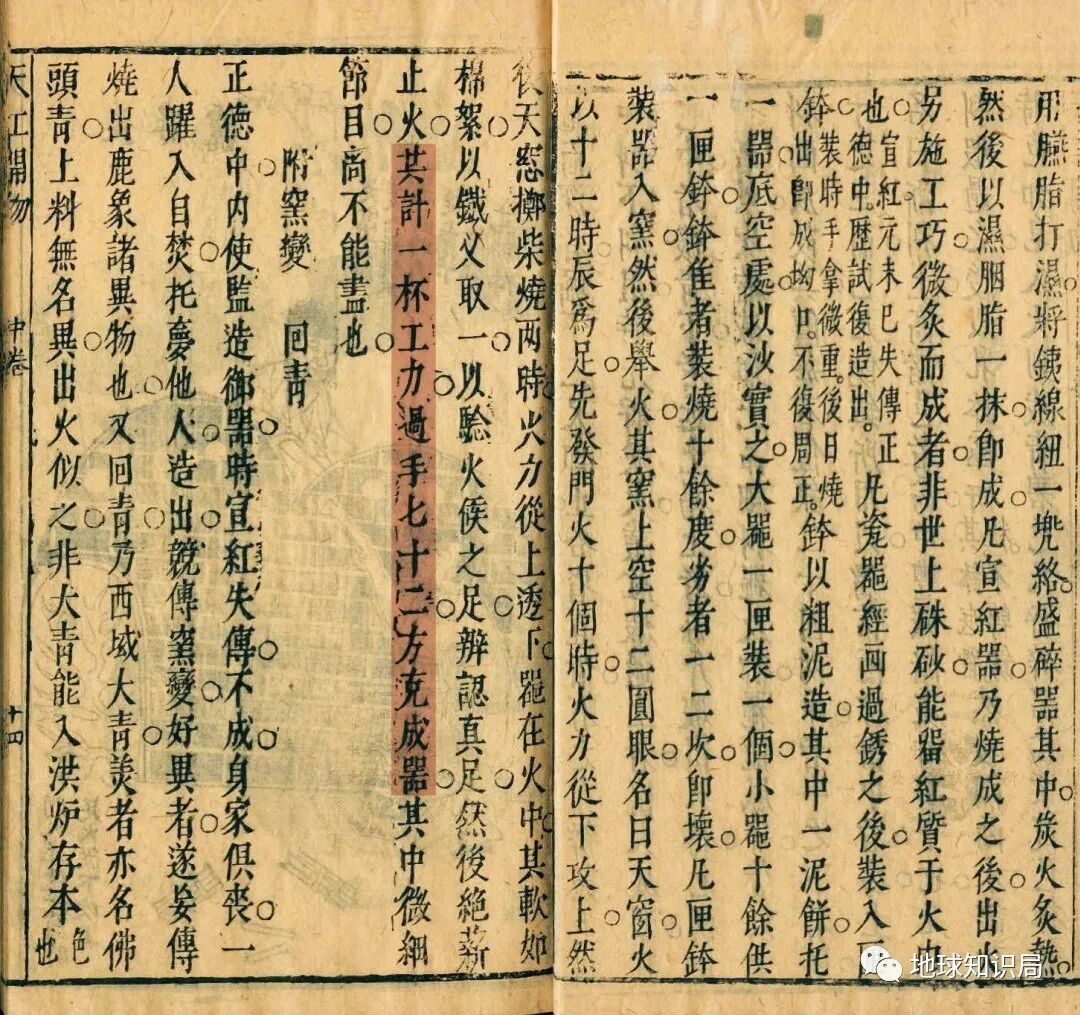 用臙脂打濕將鐵線紐一兜絡盛碎器其中炭火炙熱
然後以濕胭脂一抹即成凡宣紅器乃燒成之後出火
另施工巧微炙而成者非世上硃砂能畱紅質于火內
也宣紅元末已失傳正
德中歷試復造出凡瓷器經画過銹之後裝入匣
鉢裝時手拿微重後日燒
出即成坳口不復周正鉢以粗泥造其中一泥餅托
一器底空處以沙實之大器一匣裝一個小器十餘供
一匣鉢鉢隹者裝燒十餘度劣者一二次即壞凡匣鉢
裝器入窯然後舉火其窯上空十二圓眼名曰天窗火
以十二時辰爲足先發門火十個時火力從下攻上然
後天窓擲柴燒两時火力從上透下器在火中其軟如
棉絮以鐵义取一以驗火候之足辨認真足然後絕薪
止火共計一杯工力過手七十二方克成器其中微細
節目尚不能盡也
附窯變 囘青
正德中內使監造御器時宣紅失傳不成身家俱喪一
人躍入自焚托夢他人造出競傳窯變好異者遂妄傳
燒出鹿象諸異物也又囘青乃西域大青美者亦名佛
頭青上料無名異出火似之非大青能入洪炉存本色也
天工開物 中卷 十四
地球知识局